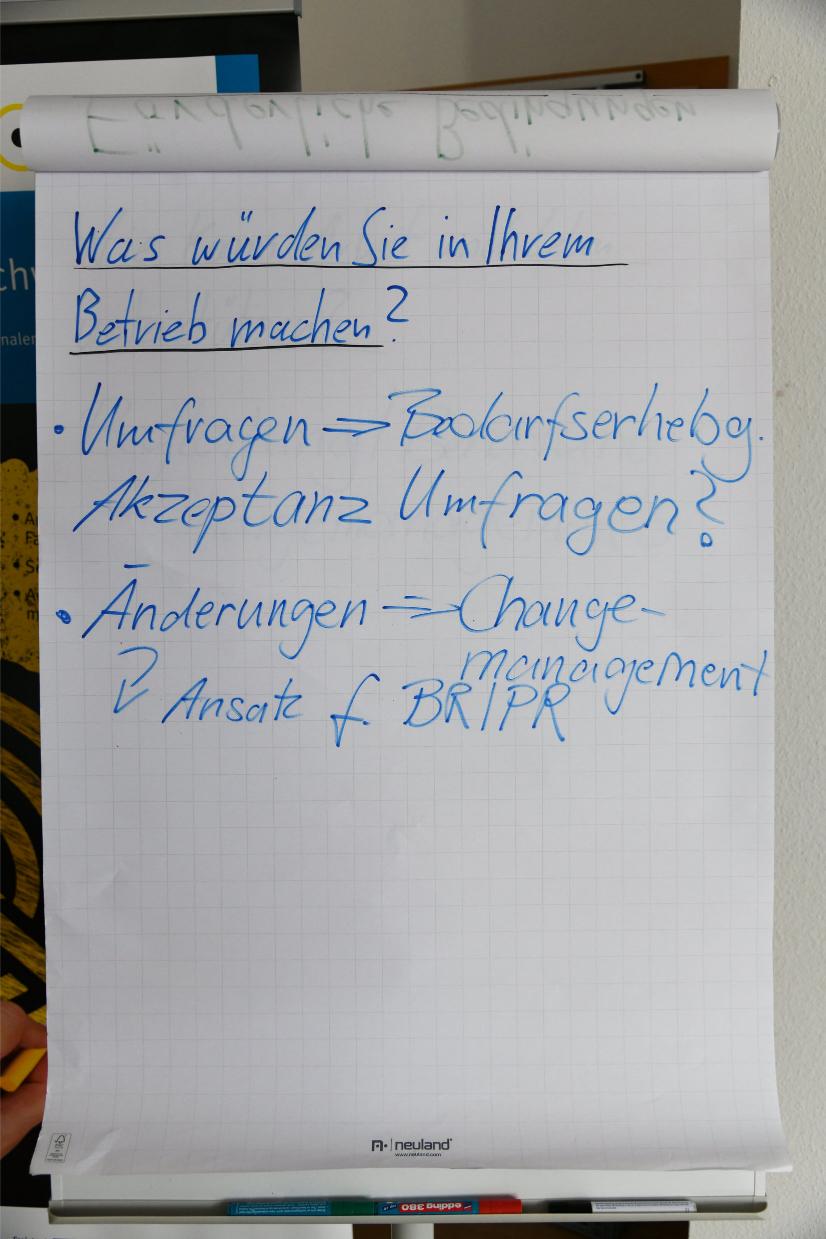 Förderliche Bedingungen
Was würden Sie in Ihrem
Betrieb machen?
• Umfragen => Bedarfserhebg.
Akzeptanz Umfragen?
• Änderungen => Change-
management
? Ansatz f. BR/PR
neuland
www.neuland.com
edding 380